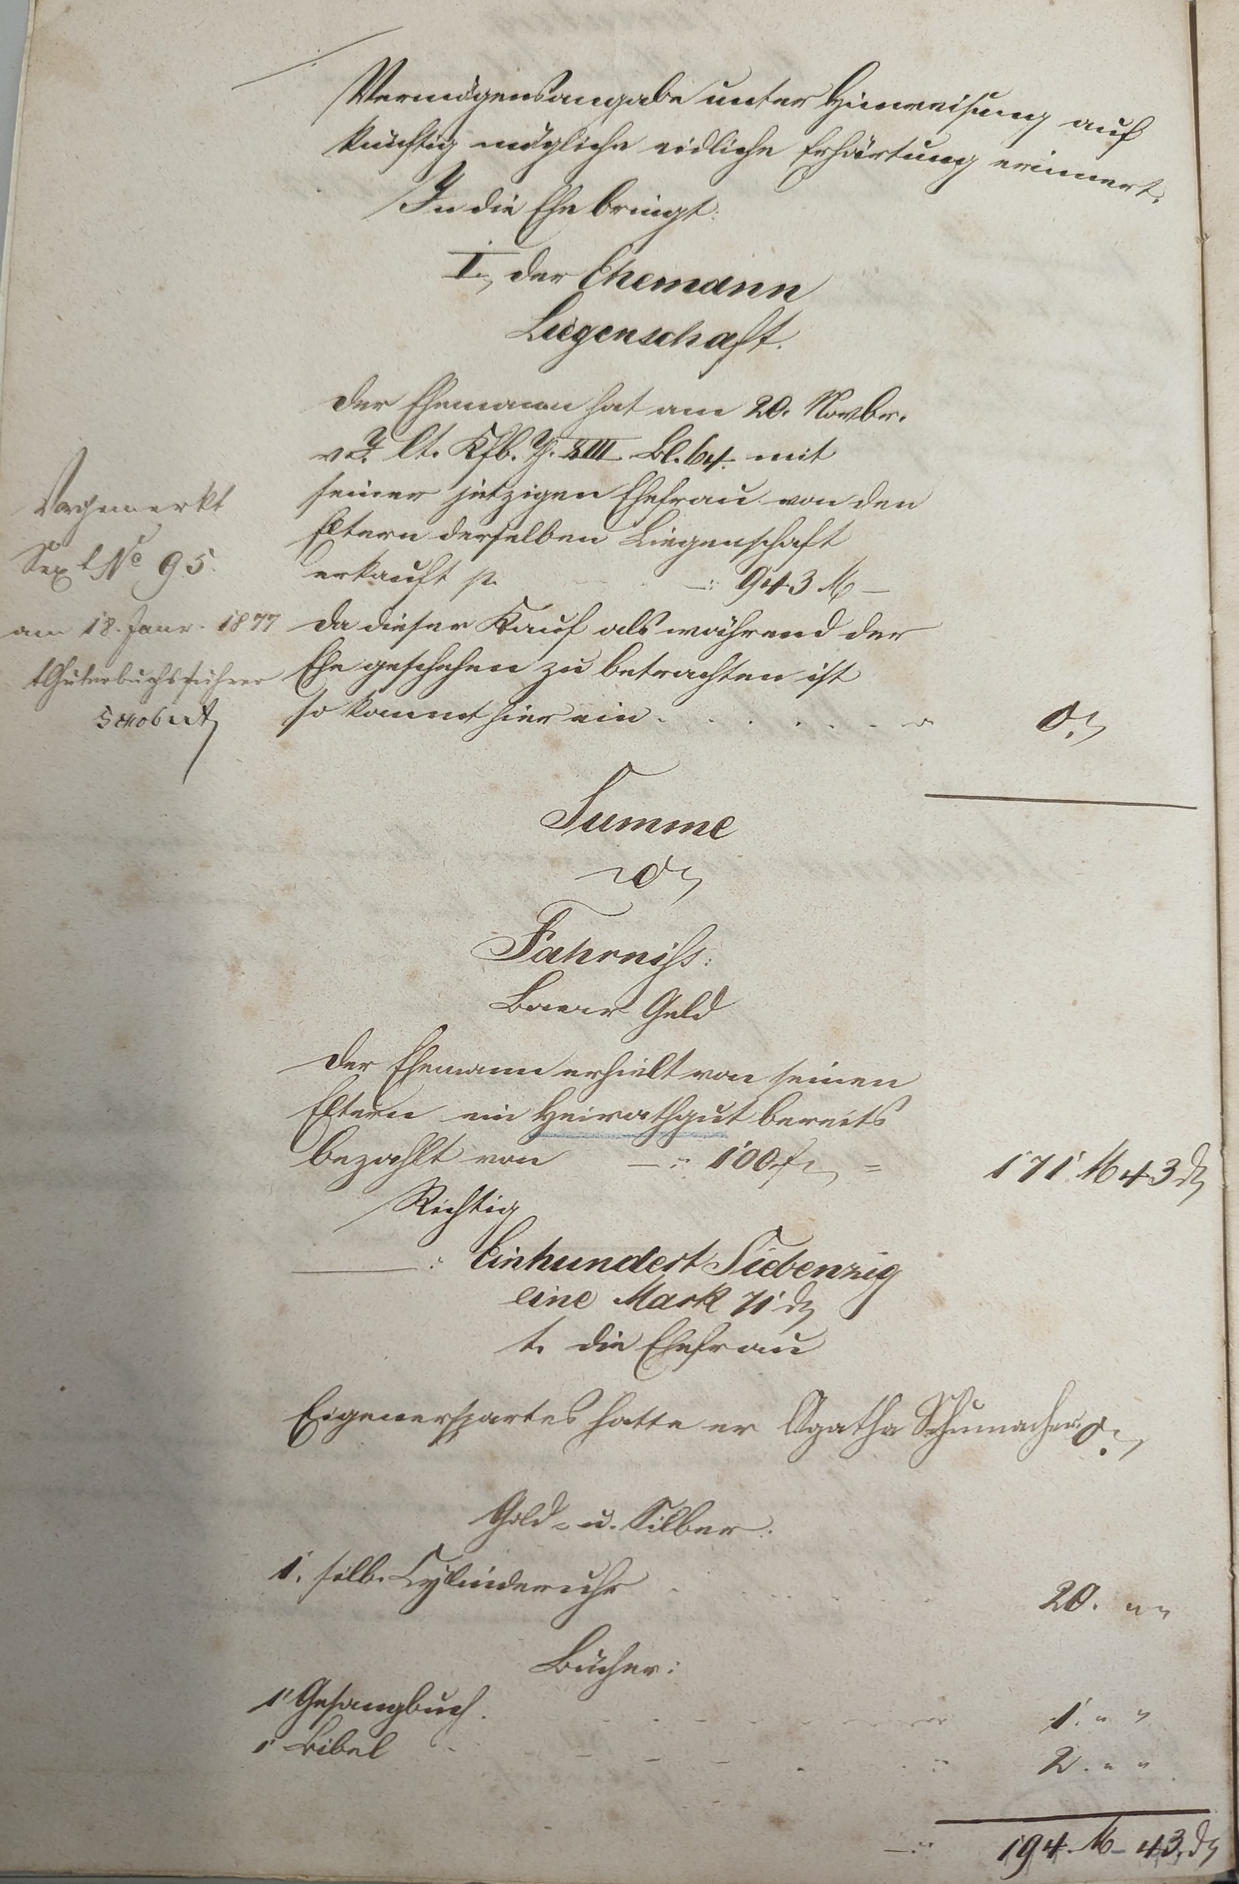 Vermögensangabe unter Hinweisung auf
künftig mögliche eidliche Erhärtung erinnert.
In die Ehe bringt:
I., der Ehemann
Liegenschaft.
Der Ehemann hat am 20. Novbr.
v. J. lt. Kfb. Th. XIII Bl. 64. mit
seiner jetzigen Ehefrau von den
Eltern derselben Liegenschaft
erkauft p. —: 943 M —
Da dieser Kauf als während der
Ehe geschehen zu betrachten ist
so kommt hier ein . . . . . . . 0.,
Vorgemerkt
No 95.
am 18. Janr. 1877
Güterbuchsführer
Schobert
Summe
0,
Fahrniss:
Baar Geld
Der Ehemann erhielt von seinen
Eltern ein Heirathgut bereits
bezahlt von —: 100 f., = 171 M 43 ₰
Richtig
—: Einhundert Siebenzig
eine Mark 71 ₰
t. die Ehefrau
Eigenerspartes hatte er Agatha Schumacher 0.,
Gold- u. Silber:
1. silb. Cylinderuhr 20. „ „
Bücher:
1 Gesangbuch. 1. „ „
1 Bibel 2. „ „
—: 194 M – 43. ₰